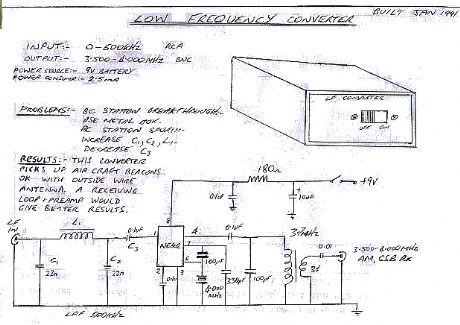 LOW FREQUENCY CONVERTER
BUILT JAN 1991
INPUT:- 0-500KHZ RCA
OUTPUT:- 3.500-4.000MHZ BNC
POWER SOURCE:- 9V BATTERY
POWER CONSUMED:- 2.5mA
PROBLEMS:- BC STATION BREAKTHROUGH:-
USE METAL BOX.
BC STATION
INCREASE C1, C2, L1.
DECREASE C3
RESULTS:- THIS CONVERTER
PICKS UP AIR CRAFT BEACONS
OK WITH OUTSIDE WIRE
ANTENNA. A RECEIVING
LOOP + PREAMP WOULD
GIVE BETTER RESULTS.
LF CONVERTER
OFF ON
180Ω
+9V
0.1uF
10uF
LF
IN
L1
0.1uF
C3
NE602
8
4
7
6
1
2
3
0.1uF
C1
22n
C2
22n
100pF
4.000
MHZ
330pF
100pF
0.01
3.500-4.000MHZ
AM, SSB RX
LPF 500KHZ